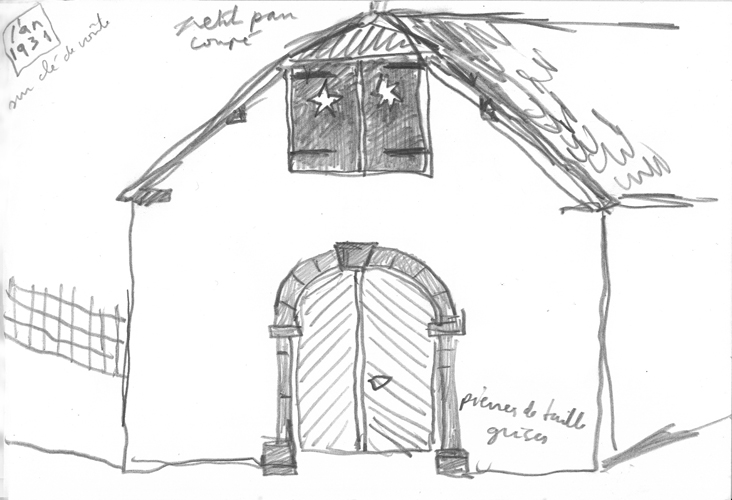 l'an
1931
sur clé de voûte
petit pan
coupé
pierres de taille
grises